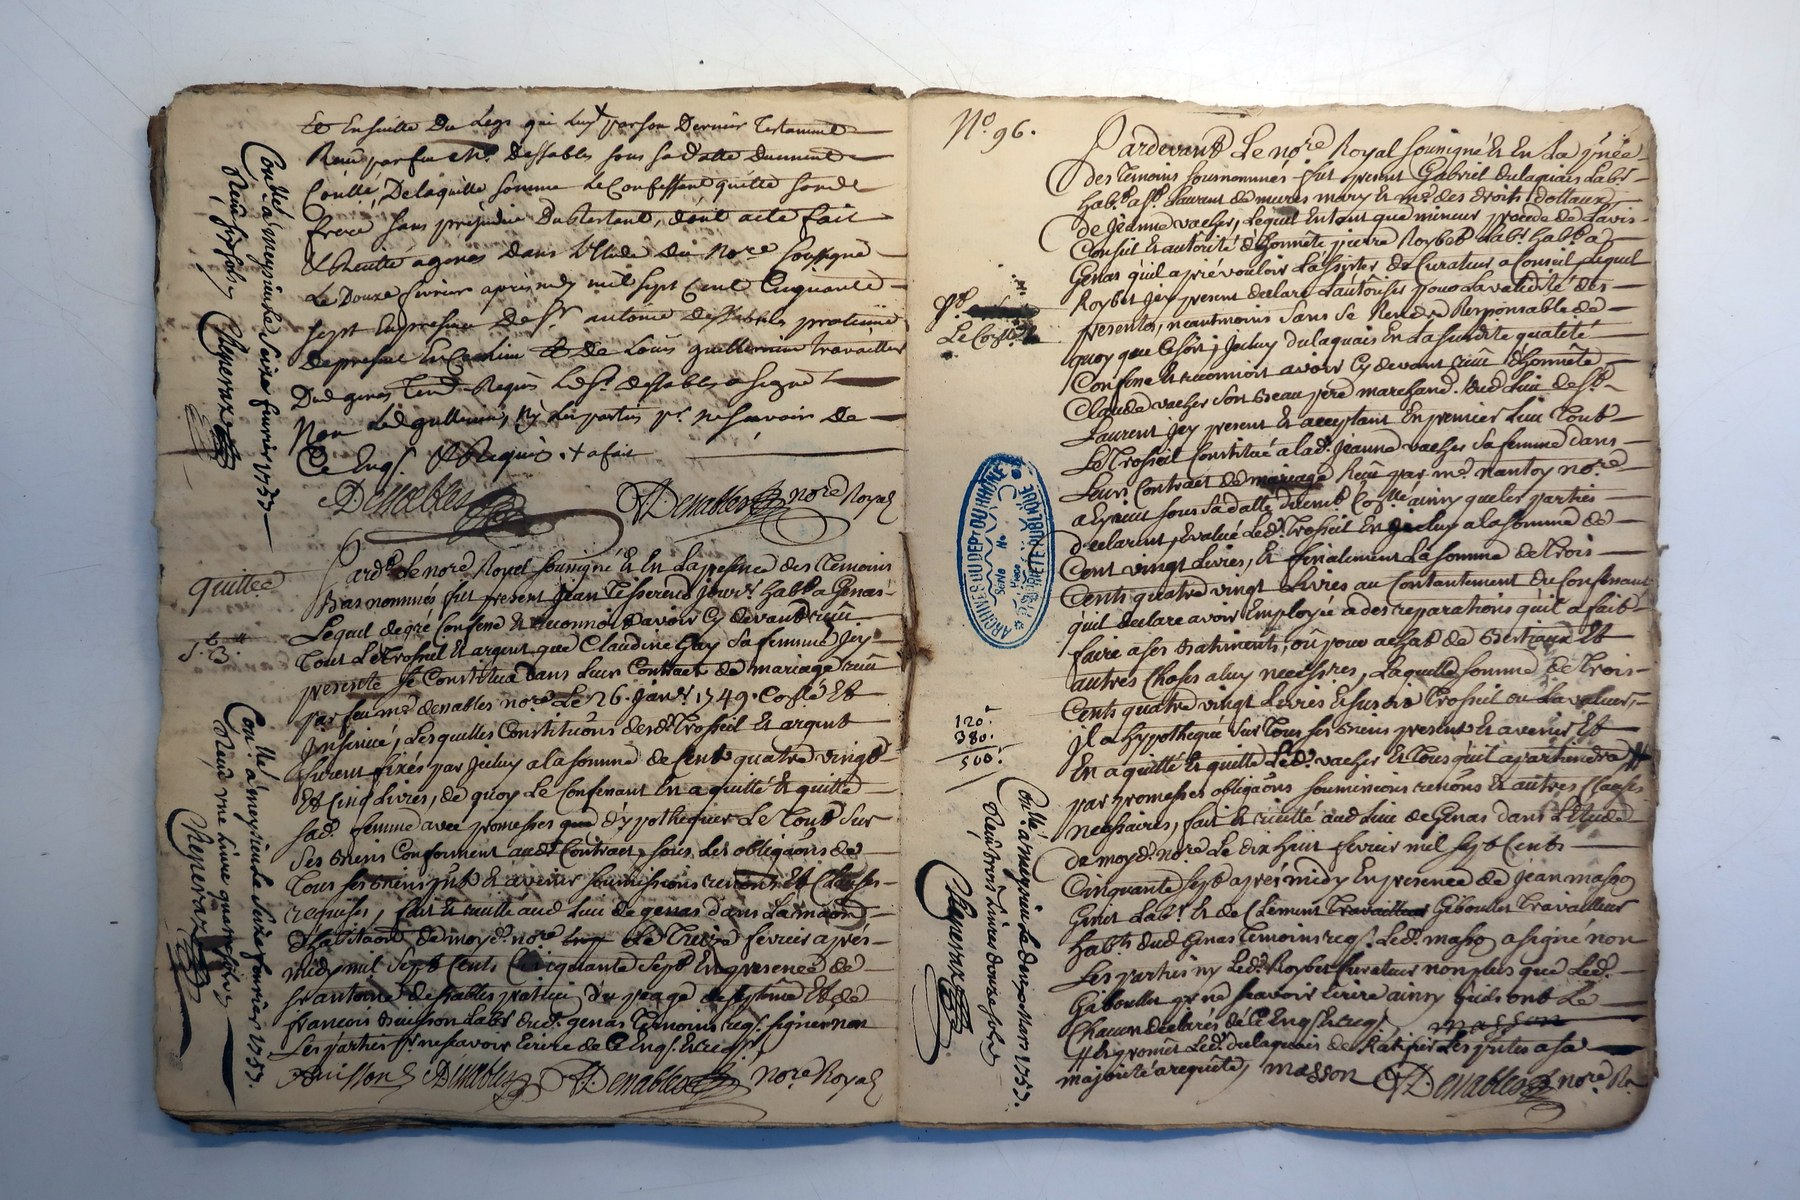 Et Ensuitte Du Légs qui Luy par son Dernier Testament
Receu par feu Me. Dessables sous sa datte duement
Con̄llé, De laquelle somme le Confessant quitte sond.
frere sans prejudice Du Restant, dont acte fait
& Recitté a genas dans L'Etude du Nore. soussigné
Le Douze fevrier apres midy mil sept Cent Cinquante
sept En presence De Sr. antoine dessables praticien
De present En Ce lieu Et de Louis guillermin travailleur
Dud. genas tem. Requis Led. Sr. dessables a signé
Non Led. guillermin, Ny Les parties pr. ne sçavoir De
Ce Enq. & Requis. + a fait
Denables Denables nore Royal
Con̄llé a meyzieu Le seize fevrier 1757
Reçu six sols
Cheneraz
quittce
Pard. Le nore Royal soussigné & En La presence des Temoins
Bas nommés fut present Jean Tisserend journr. habt. a Genas
Lequel de gré Confesse & reconnoit avoir Cy devant reçu
Tout Le Trosseil & argent que Claudine Guy sa femme Jcy
presente se Constitua dans Leur Contract de mariage reçu
par feu me. denables nore Le 26. Janvr. 1749. Con̄llé Et
Jnsinué, Lesquelles Constitutions desd. Trosseil & argent
furent fixés par Jceluy a la somme de Cent quatre vingt
Et Cinq Livres, de quoy Le Confessant En a quitté & quitte
sad. femme avec promesses d'ypothequer Le Tout sur
ses Biens Conforment aud. Contract, sous Les obliga͠ons de
Tous ses Biens pnts & avenir soumissions renons. Et Clauses
requises, fait & recitté aud. Lieu de genas dans La maison
d'habitaon de moyd. nore Le Treize fevrier aprés
midy mil sept Cents Cinquante sept En presence de
Sr. antoine dessables praticien du peage de septeme Et de
françois Buisson Labr. dud. genas Temoins req. signés non
Les parties pr. ne sçavoir Ecrire de Ce Enq. & req.
Buisson Denables Denables nore Royal
Con̄llé a meyzieu Le seize fevrier 1757.
Reçu une Livre quatre sols
Cheneraz
No. 96.
Pardevant Le nore Royal soussigné & En La pnce
des Temoins sousnommés fut present Gabriel dulaquais Labr.
habt. a St. Laurent de mures mary & me. des droits dottaux
de Jeanne vacher, Lequel En tant que mineur procede de L'avis
Conseil & autorité d'honnete pierre Roybet Labr. habt. a
Genas qu'il a prié vouloir L'assister de Curateur a Conseil Lequel
Roybet Jcy present declare L'autoriser pour La validité des
presentes, neantmoins sans se Rendre Responsable de
quoy que Ce soit; Jceluy dulaquais En La susdite qualité
Confesse & reconnoit avoir Cy devant reçu d'honnete
Claude vacher son Beau pere marchand. dud. Lieu de St.
Laurent Jcy present & acceptant En premier Lieu Tout
Le Trosseil Constitué a lad. Jeanne vacher sa femme dans
Leur Contract de mariage Reçu par me. nantoy nore
a Lyon sous sa datte duemt. Con̄llé ainsy que les parties
declarent, Evalué Led. Trosseil En Jceluy a la somme de
Cent vingt Livres, & finalement La somme de Trois
Cents quatre vingt Livres au Contantement du Confessant
qu'il declare avoir Employée a des reparations qu'il a fait
faire a ses Batiments, ou pour achat de Bestiaux Et
autres Choses a luy necessres, Laquelle somme de Trois
Cents quatre vingt Livres & susdit Trosseil ou La valeur,
il a hypothequé sur Tous ses Biens presents & avenir Et
En a quitté & quitte Led. vacher & Tous qu'il apartiendra #
par promesses obligaons soumissions renons & autres Clauses
necessaires, fait & recitté aud. Lieu de Genas dans L'Etude
de moyd. nore Le dix huit fevrier mil sept Cents
Cinquante sept aprés midy En presence de Jean masson
Labr. & de Clement Travailleur Giboulet Travailleur
habts. dud. Genas Temoins req. Led. masson a signé non
Les parties ny Led. Roybet Curateur non plus que Led.
Giboulet pr. ne sçavoir Ecrire ainsy qu'ils ont Le
Chacun declarés de Ce Enq. & req. masson
# & promet Led. dulaquais de Ratifier Les pntes a sa
majorité a requete, masson Denables nore Ro
Le Con̄
ARCHIVES DU DEPT DU RHÔNE
120.
380.
500.
Con̄llé a meyzieu Le deux Mars 1757.
Reçu trois Livres douze sols
Cheneraz